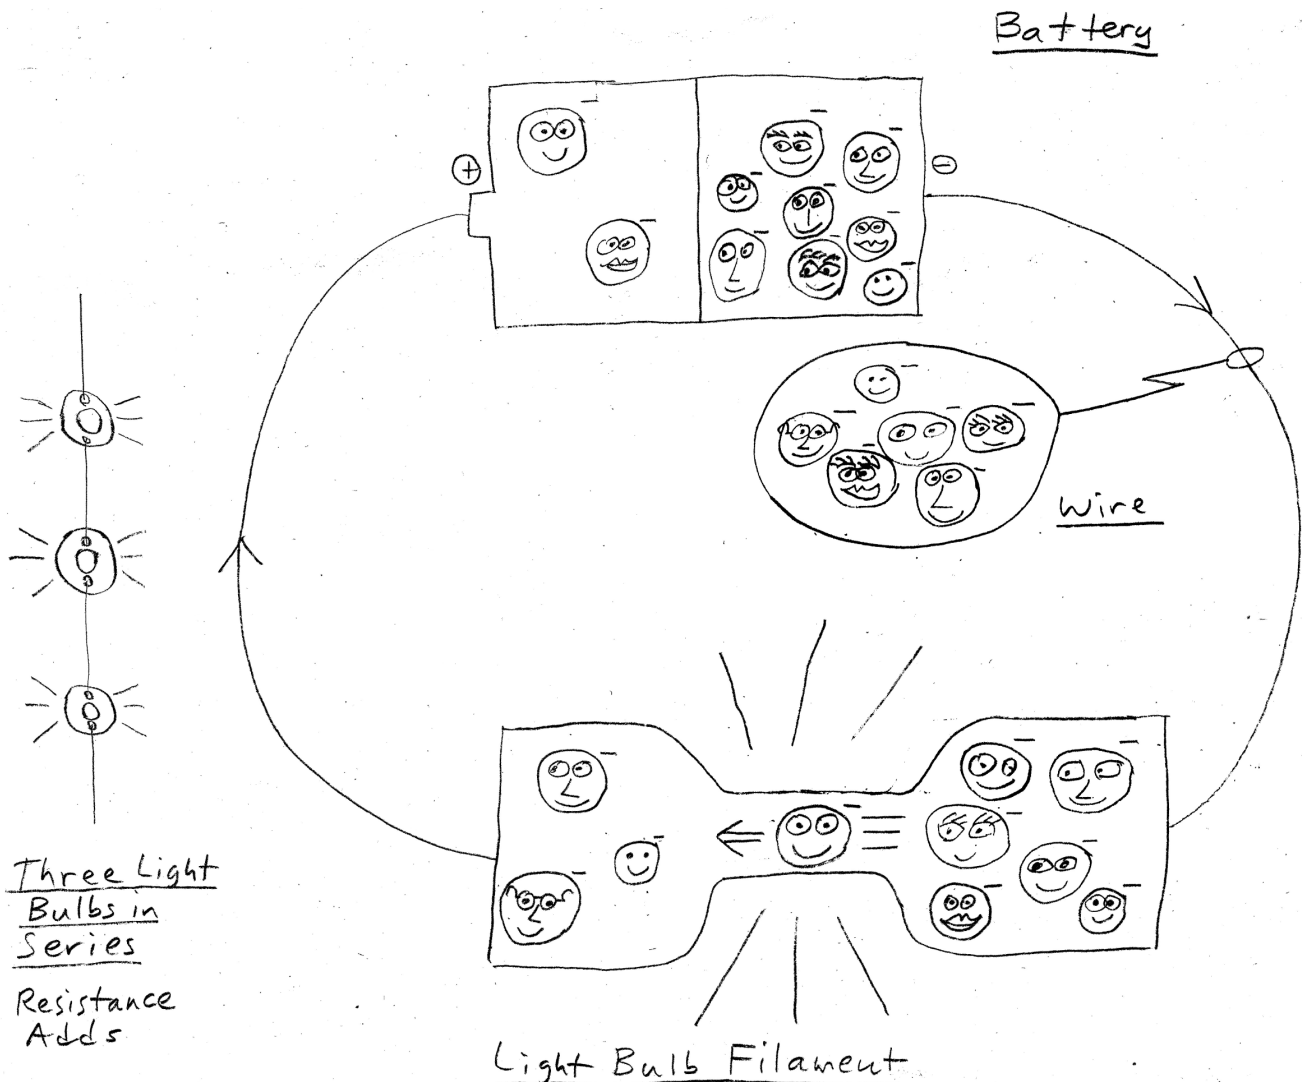 Battery
+
-
Wire
Three Light
Bulbs in
Series
Resistance
Adds
Light Bulb Filament